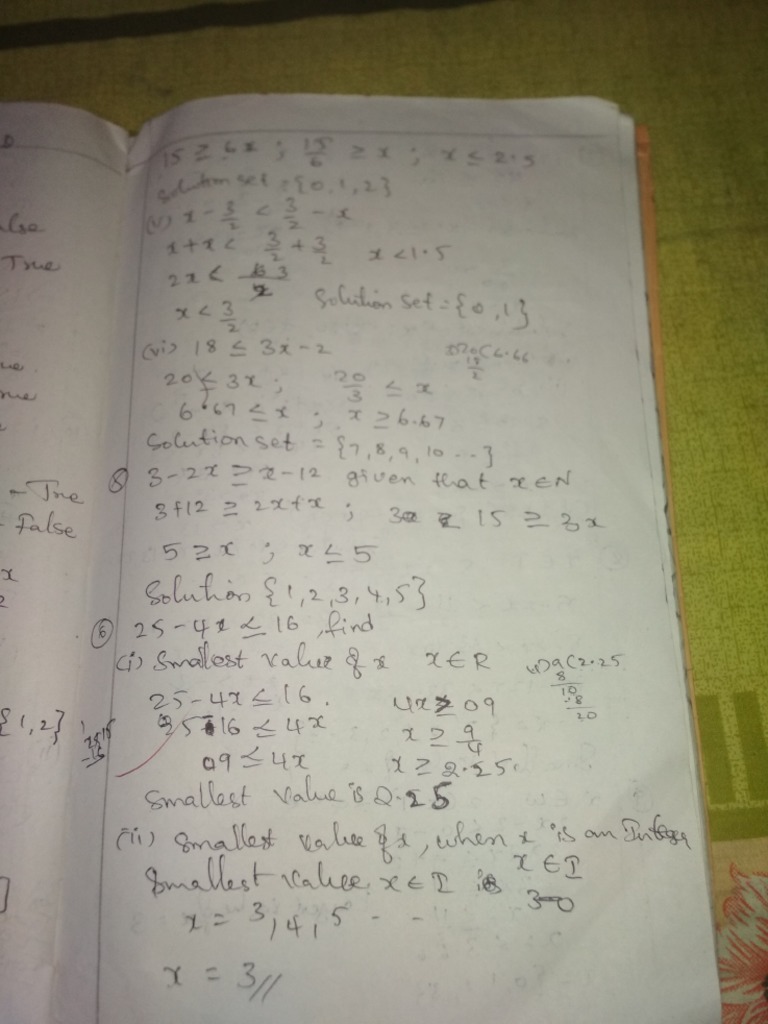 15 ≥ 6x ; 15/6 ≥ x ; x ≤ 2.5
Solution set = {0, 1, 2}
(v) x - 3/2 < 3/2 - x
x + x < 3/2 + 3/2 x < 1.5
2x < 3
x < 3/2 Solution set = {0, 1}
(vi) 18 ≤ 3x - 2
20 ≤ 3x ; 20/3 ≤ x
6.67 ≤ x ; x ≥ 6.67
Solution set = {7, 8, 9, 10 ...}
3 - 2x ≥ x - 12 given that x ∈ N
3 + 12 ≥ 2x + x ; 15 ≥ 3x
5 ≥ x ; x ≤ 5
Solution {1, 2, 3, 4, 5}
⑥ 25 - 4x ≤ 16, find
(i) Smallest value of x x ∈ R
25 - 4x ≤ 16. 4x ≥ 09
25 - 16 ≤ 4x x ≥ 9/4
09 ≤ 4x x ≥ 2.25
Smallest value is 2.25
(ii) Smallest value of x, when x is an Integer
x ∈ I
Smallest value x ∈ I is
x = 3, 4, 5 - -
x = 3//
True
- True
- False
x
2
{1, 2}